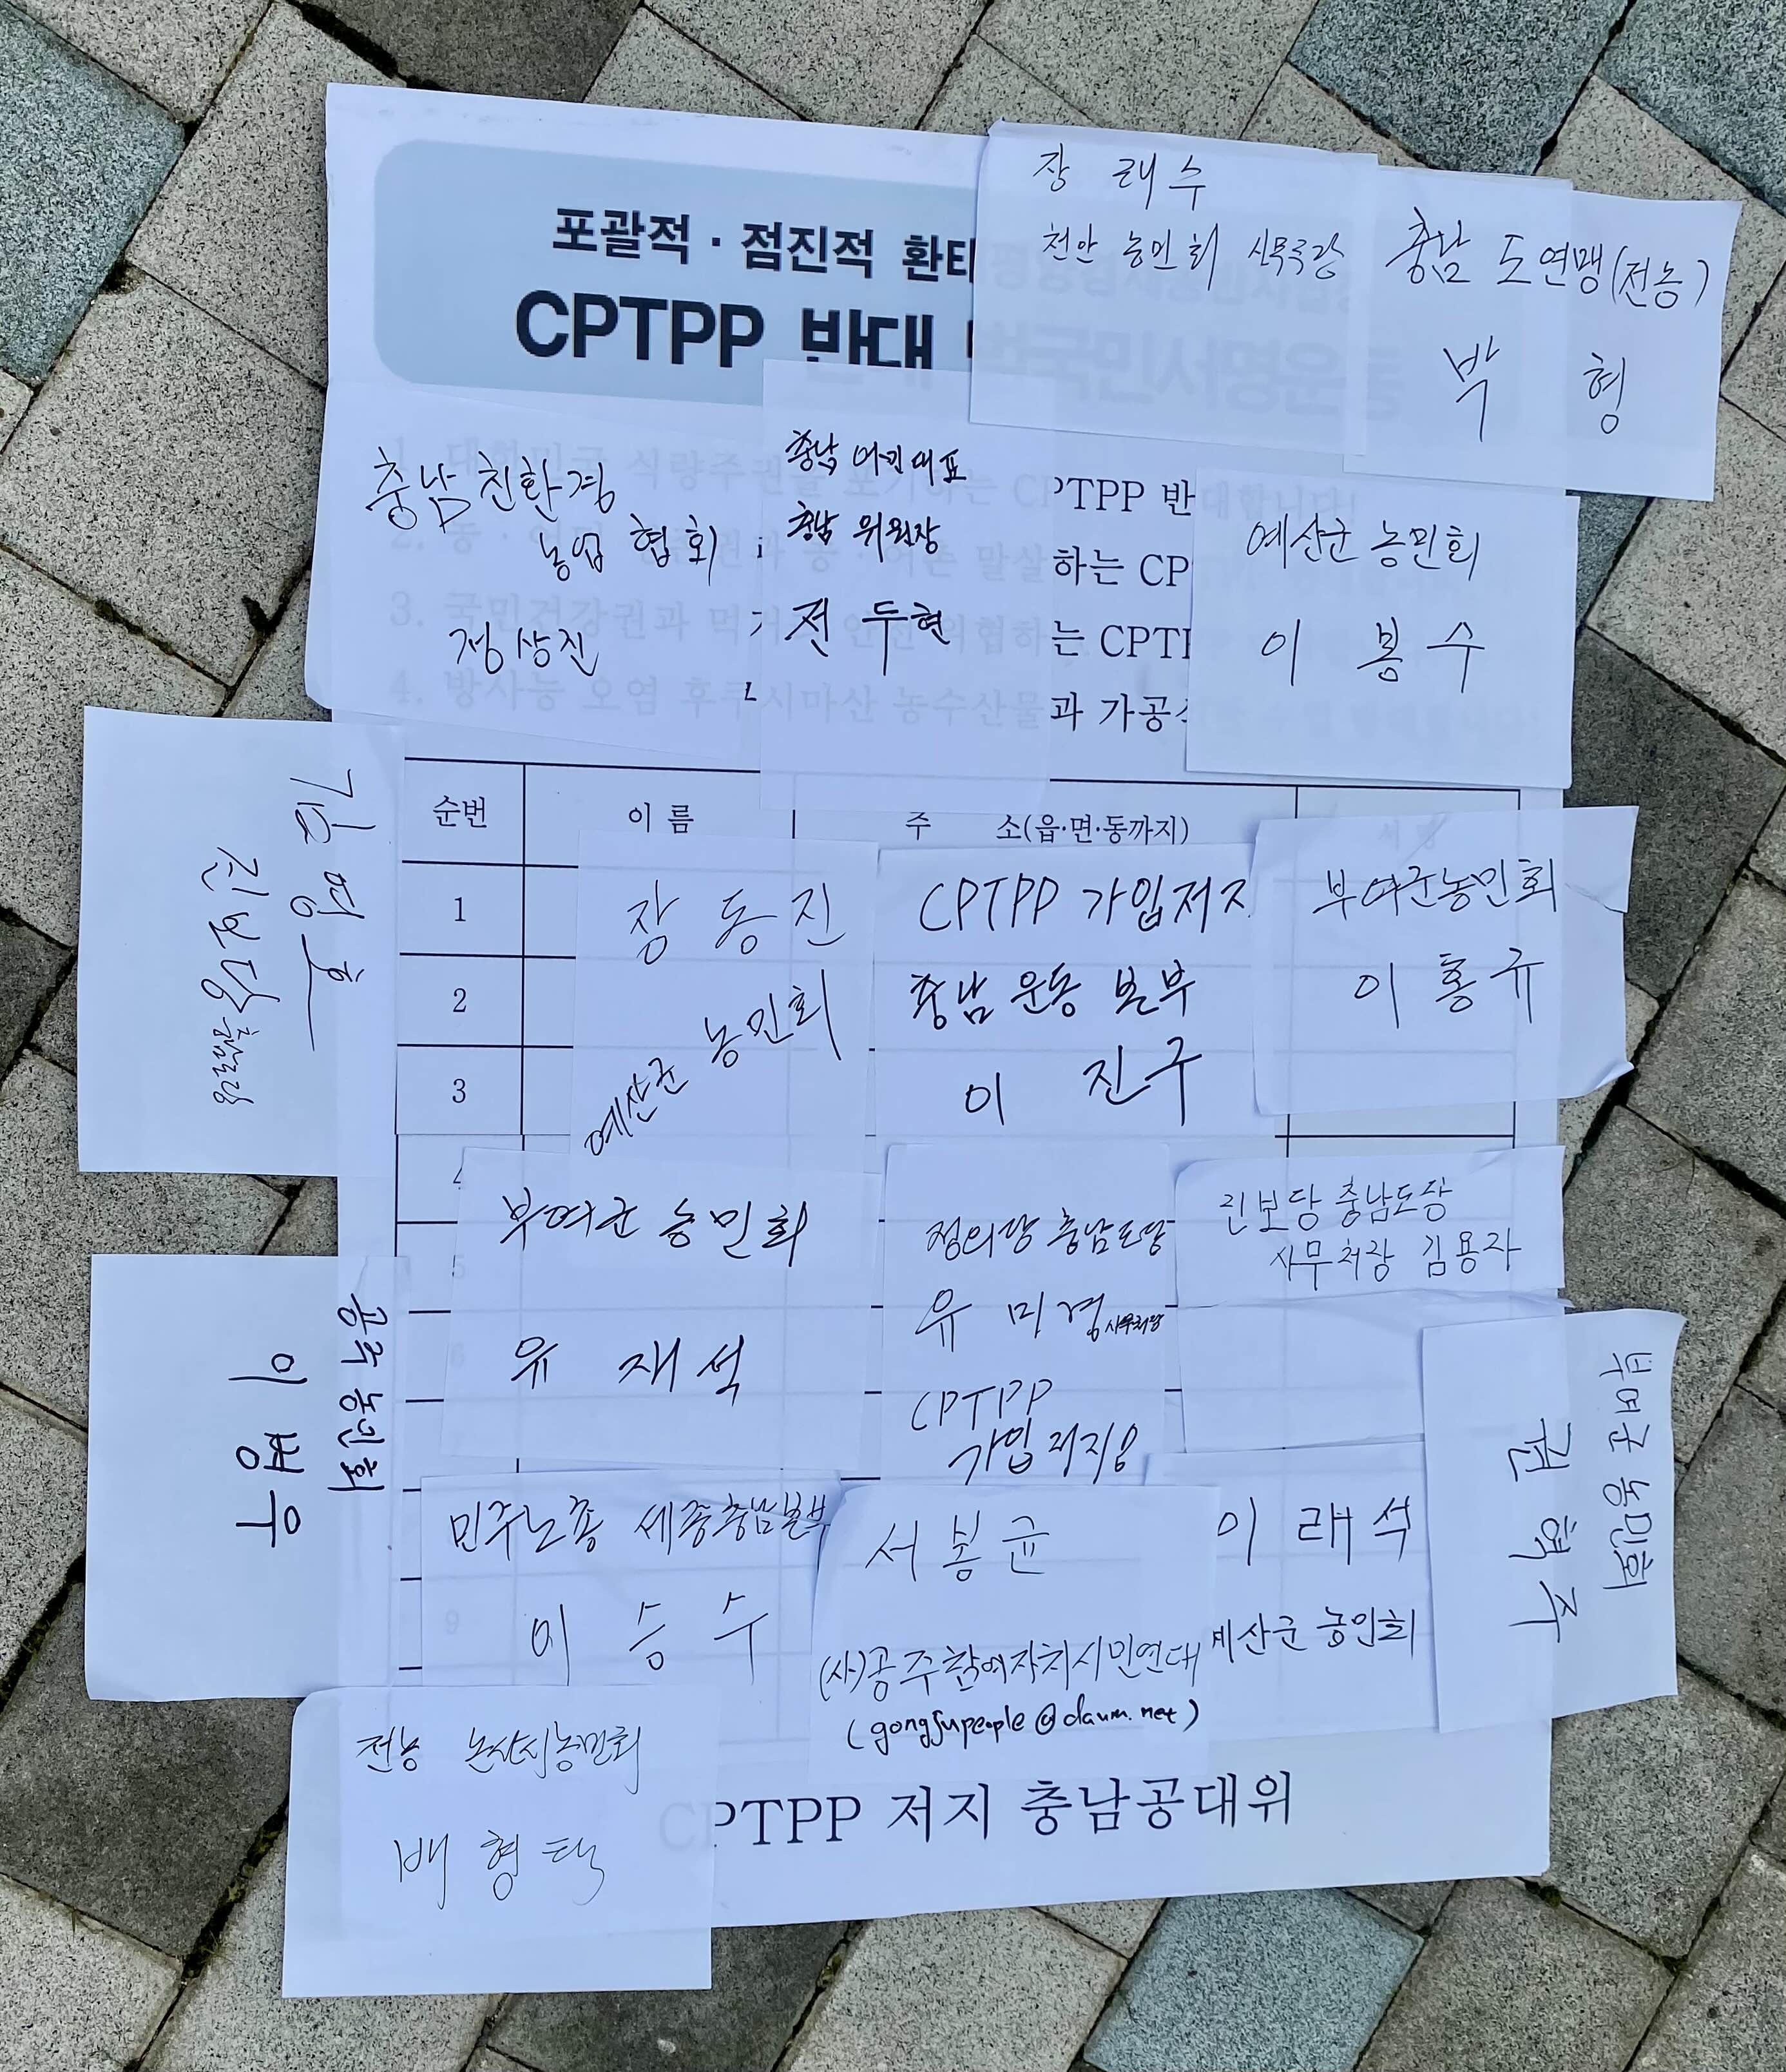 포괄적·점진적 환태
CPTPP 반대
장 래 수
천안 농민회 사무국장
충남 도연맹(전농)
박 형
충남친환경
농업 협회
정상진
충남 어민대표
충남 위원장
전 두현
1. 대한민국 식량주권을 포기하는 CPTPP 반대합니다!
하는 CP
3. 국민건강권과 먹거리 안전 위협하는 CPTP
4. 방사능 오염 후쿠시마산 농수산물과 가공
예산군 농민회
이 봉 수
김 영 호
진보당 충남도당
순번
이 름
주 소(읍·면·동까지)
서 명
1
2
3
4
5
6
9
장 동 진
예산군 농민회
CPTPP 가입저지
충남 운동 본부
이 진구
부여군농민회
이 홍 규
부여군 농민회
유 재 석
정의당 충남도당
유 미 경 사무처장
CPTPP
가입 저지!
진보당 충남도당
사무처장 김용자
공주 농민회
이 병 우
부여군 농민회
권 혁 주
민주노총 세종충남본부
이 승 수
서 봉 균
(사)공주참여자치시민연대
(gongjupeople@daum.net)
이 래 석
예산군 농민회
전농 논산시농민회
배 형 택
CPTPP 저지 충남공대위